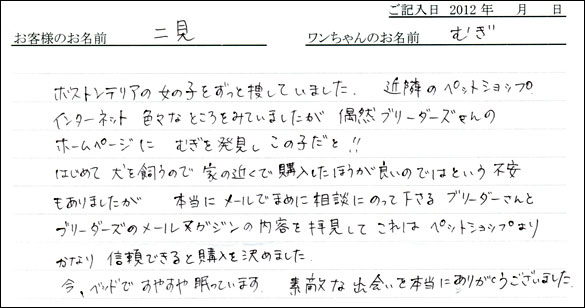 ご記入日 2012 年 月 日
お客様のお名前 二見 ワンちゃんのお名前 むぎ
ボストンテリアの女の子をずっと捜していました. 近隣のペットショップ.
インターネット 色々なところをみていましたが 偶然ブリーダーズさんの
ホームページに むぎを発見し この子だと!!
はじめて 犬を飼うので 家の近くで購入したほうが良いのではという 不安
もありましたが 本当にメールでまめに相談にのって下さる ブリーダーさんと
ブリーダーズのメールマガジンの内容を拝見して これは ペットショップより
かなり 信頼できると購入を決めました.
今、ベッドで すやすや 眠っています. 素敵な出会いを本当にありがとうございました.